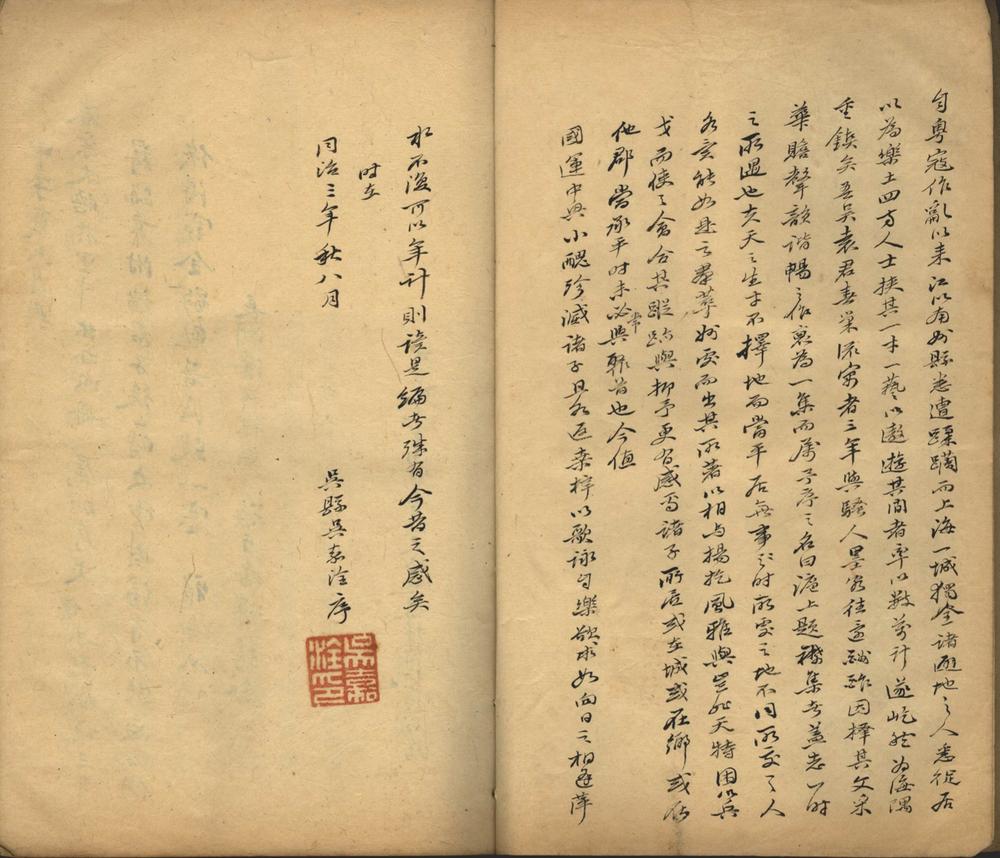 自粵寇作亂以来江以南州縣悉遭蹂躪而上海一城獨全諸避地之人悉從居
以為樂土四方人士挟其一才一藝以遨遊其間者率以數萬計遂屹然為海隅
重鎮矣吾吳袁君春巢流寓者三年與騷人墨客往還酬酢因擇其文采
華贍聲韻諧暢之作裒為一集而屬予序之名曰滬上題襟集者蓋志一時
之所遇也夫天之生才不擇地而當平居無事之時所處之地不同所交之人
各異能如是之羣萃州處而出其所著以相与揚扢風雅與豈非天特困以兵
戈而使之會合其蹤跡與抑予更有感焉諸子所居或在城或在鄉或居
他郡當承平時未必常與聚首也今值
國運中興小醜殄滅諸子且各返桑梓以歌詠自樂欲求如向日之相逢萍
水不復可以年計則讀是編者殊有今昔之感矣
时在
同治三年秋八月
吳縣吳嘉淦序
吳嘉淦印